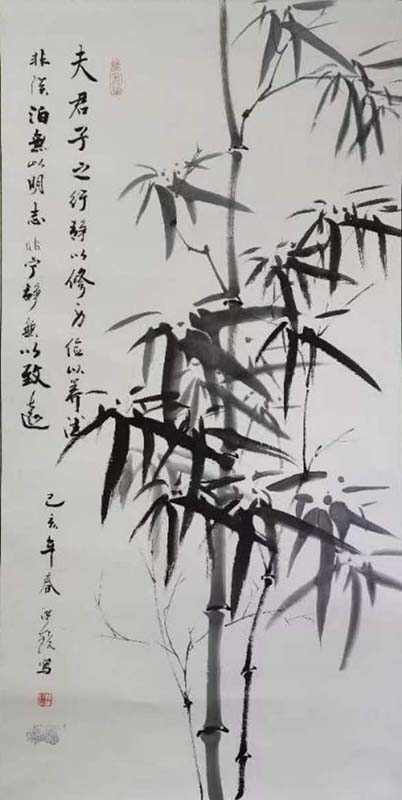 夫君子之行静以修身俭以养德
非淡泊無以明志非宁静無以致遠
己亥年春
写